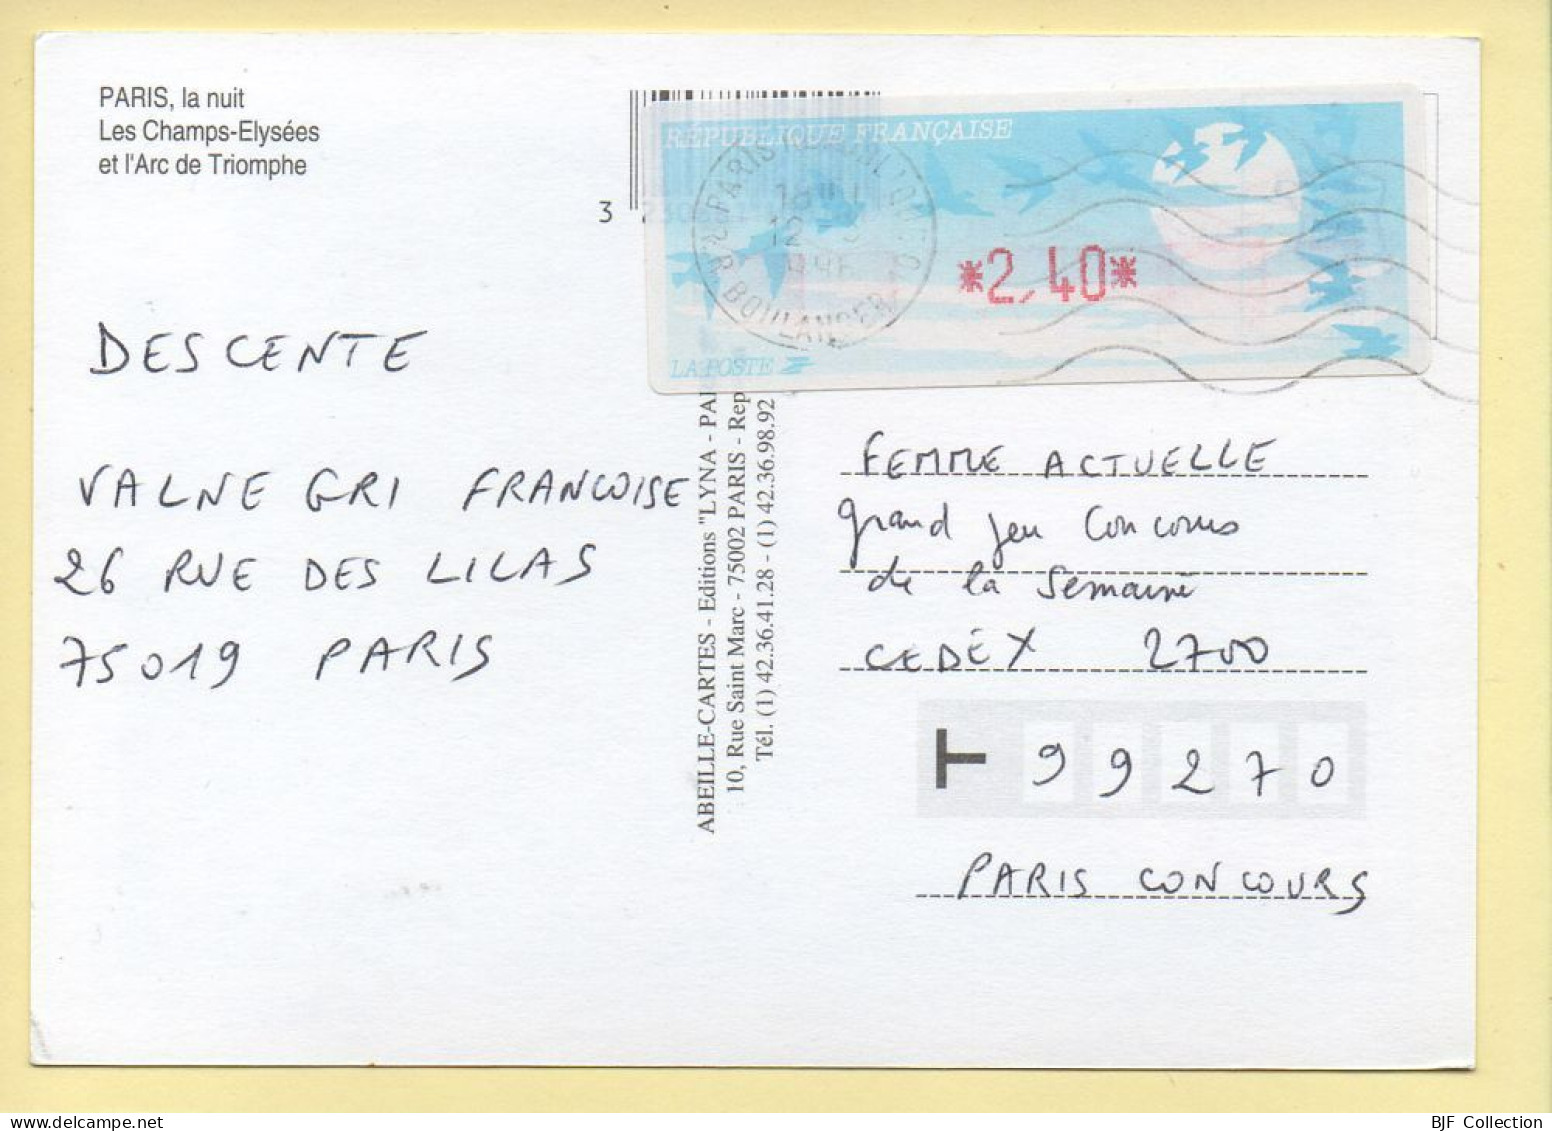 PARIS, la nuit
Les Champs-Elysées
et l'Arc de Triomphe
3
REPUBLIQUE FRANÇAISE
*2,40*
LA POSTE
PARIS
12
BOULANGER
DESCENTE
VALNEGRI FRANCOISE
26 RUE DES LILAS
75019 PARIS
ABEILLE-CARTES - Editions "LYNA -
10, Rue Saint Marc - 75002 PARIS -
Tél. (1) 42.36.41.28 - (1) 42.36.98.92
FEMME ACTUELLE
grand jeu Concours
de la Semaine
CEDEX 2700
T 99270
PARIS CONCOURS
BJF Collection